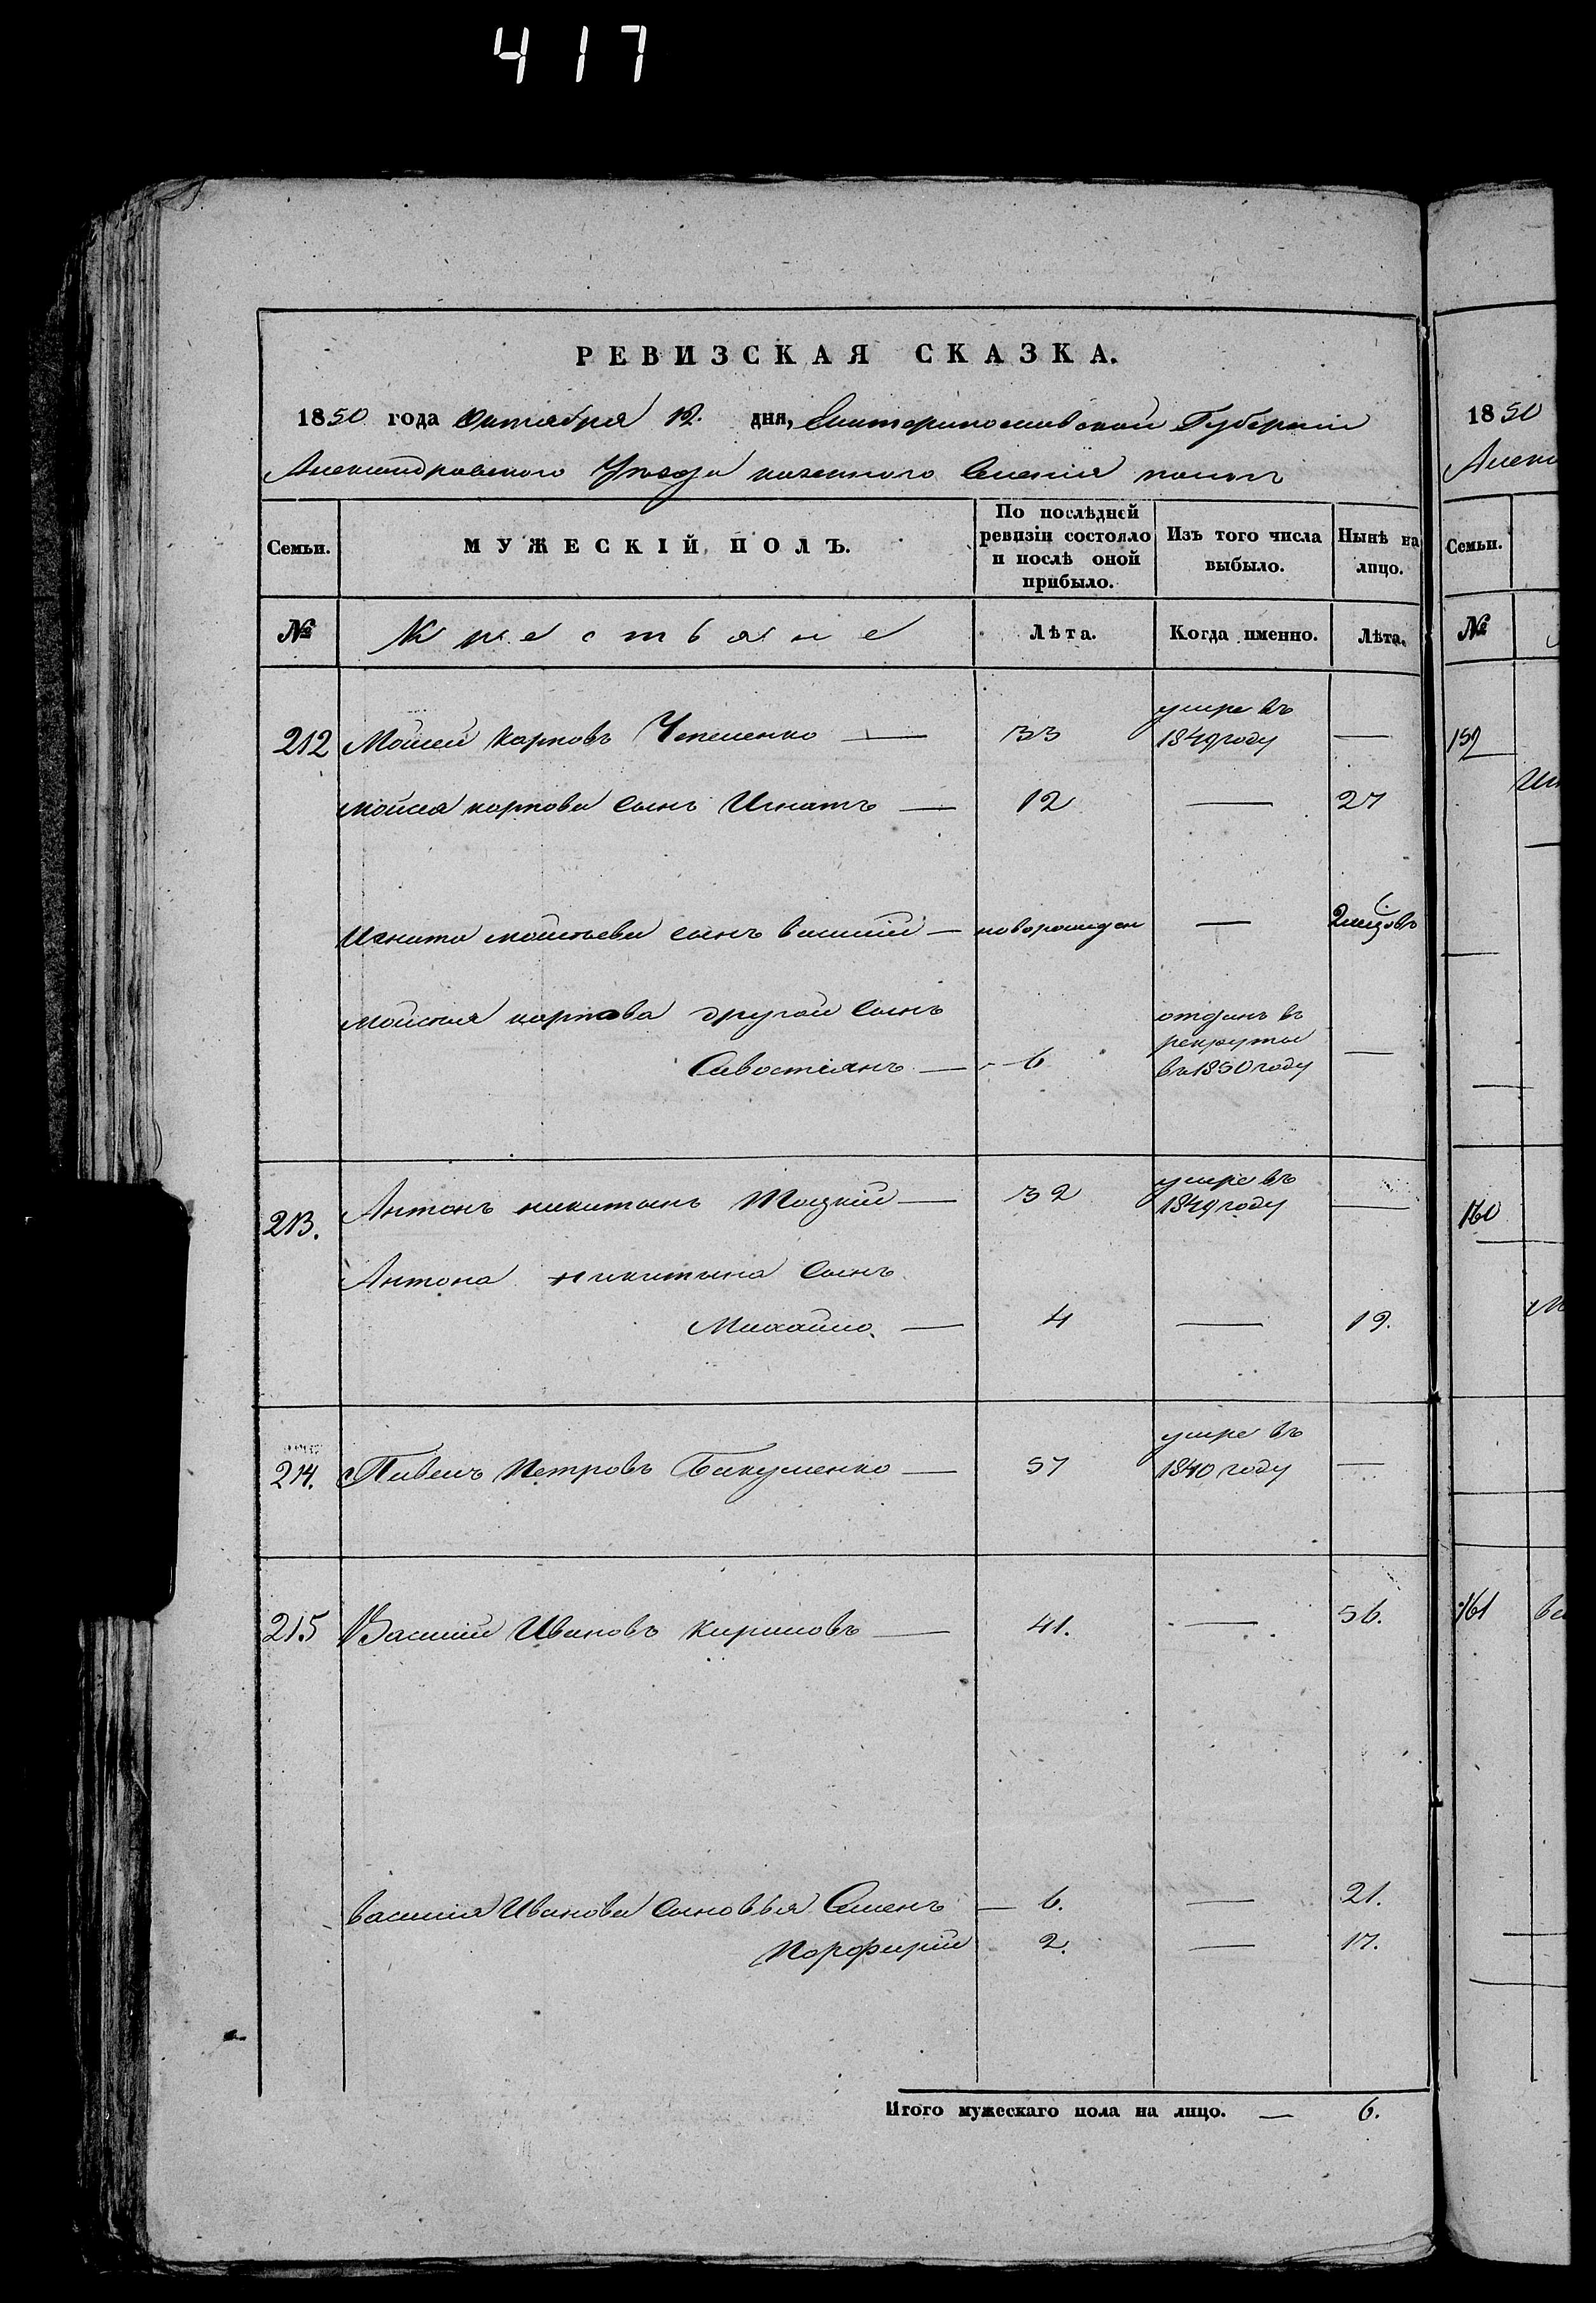 417
РЕВИЗСКАЯ СКАЗКА.
1850 года Октября 12. дня, Екатеринославской Губернии
Александровского Уезда казенного Селения
Семьи.
МУЖЕСКІЙ ПОЛЪ.
По послѣдней ревизіи состояло и послѣ оной прибыло.
Изъ того числа выбыло.
Нынѣ на лицо.
№
Крестьяне
Лѣта.
Когда именно.
Лѣта.
212 Мойсей Карповъ — 33 умре въ 1849 году —
Мойсея Карпова Сынъ Игнатъ — 12 — 27
Игната Мойсеева сынъ Василій — новорожден — 2 месяцовъ
Мойсея карпова другой Сынъ
Савостіянъ — 6 отданъ въ рекруты въ 1850 году —
213. Антонъ никитинъ — 32 умре въ 1849 году —
Антона никитина Сынъ
Михайло. — 4 — 19.
214. Петровъ Бакуменко — 57 умре въ 1840 году —
215 Василий Ивановъ Кириловъ — 41. — 56.
Василия Иванова Сыновья Семенъ — 6. — 21.
Порфирий 2. — 17.
Итого мужескаго пола на лицо. — 6.
1850
Семьи.
№
159
160
161